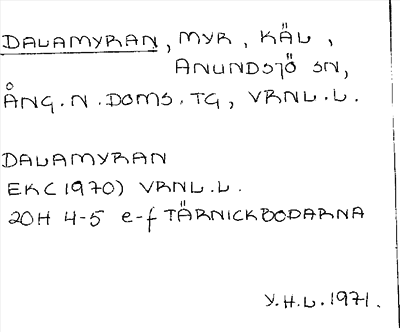 DALAMYRAN, MYR, KÄL,
ANUNDSJÖ SN,
ÅNG.N.DOMS.TG, VRNL.L.
DALAMYRAN
EK(1970) VRNL.L.
20H 4-5 e-f TÄRNICKBODARNA
Y.H.L.1971.